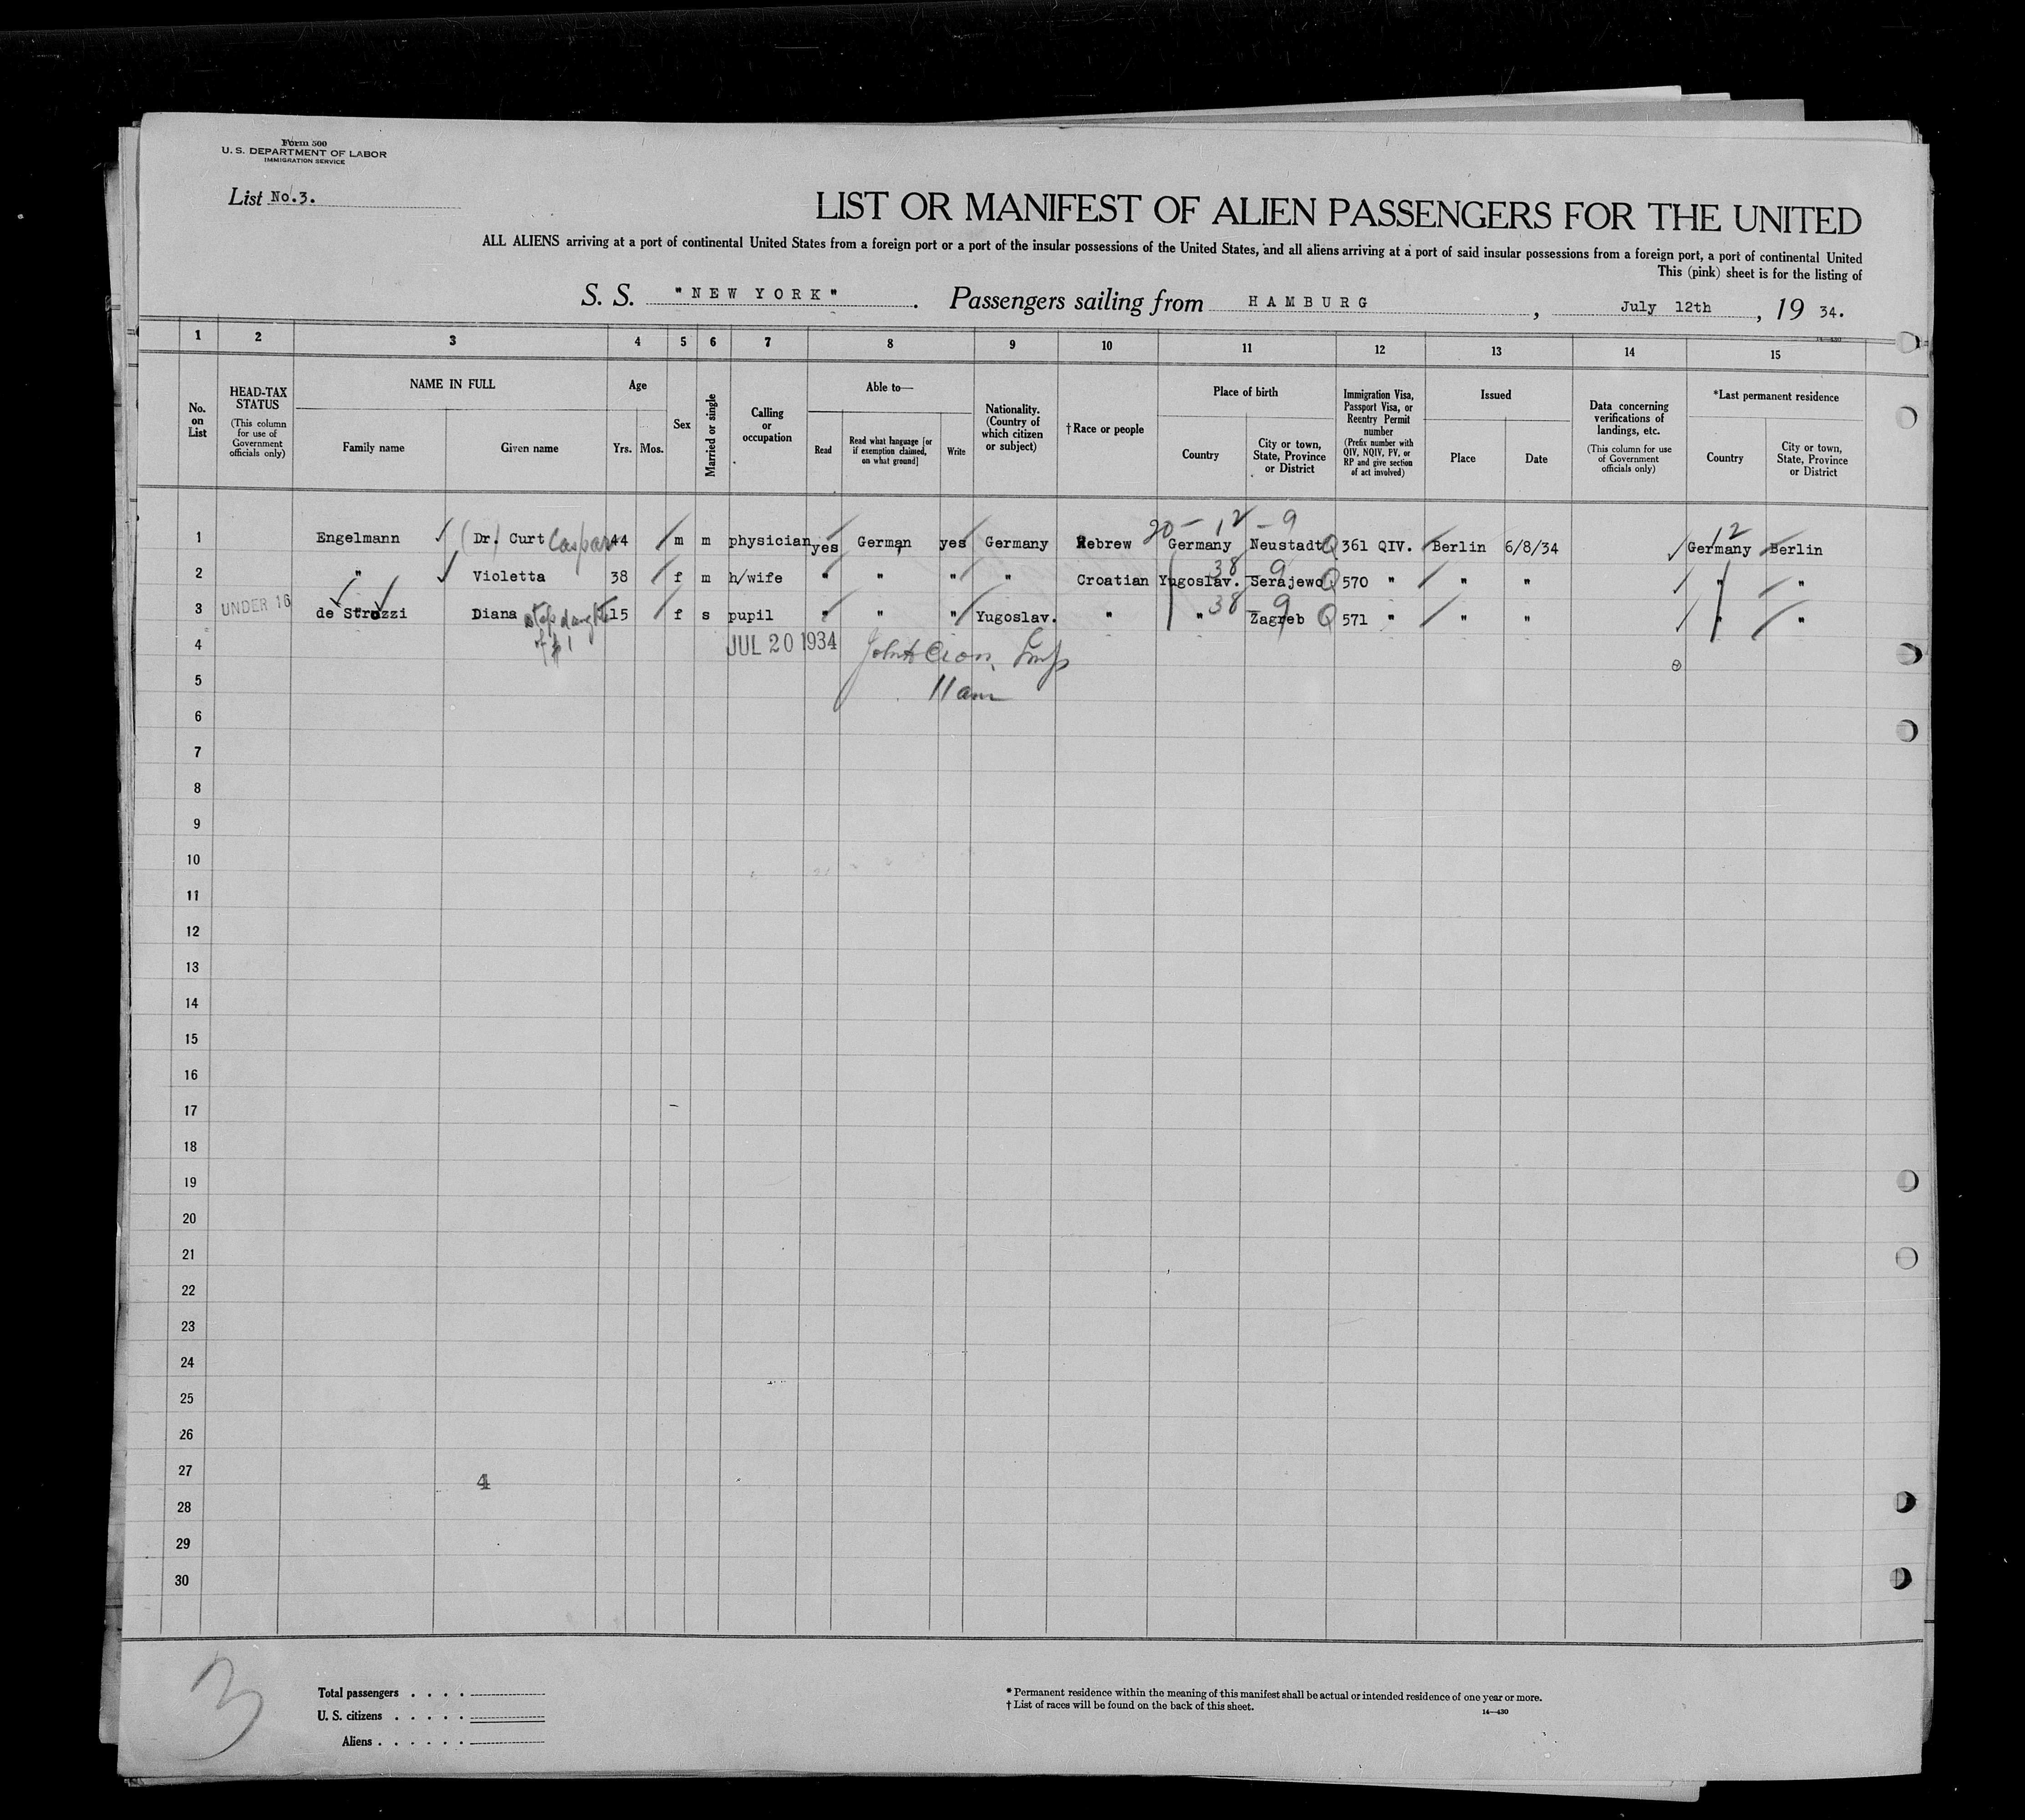 Form 500
U. S. DEPARTMENT OF LABOR
IMMIGRATION SERVICE
List No.3.
LIST OR MANIFEST OF ALIEN PASSENGERS FOR THE UNITED
ALL ALIENS arriving at a port of continental United States from a foreign port or a port of the insular possessions of the United States, and all aliens arriving at a port of said insular possessions from a foreign port, a port of continental United
This (pink) sheet is for the listing of
S. S. "NEW YORK". Passengers sailing from HAMBURG, July 12th, 19 34.
14—430
1 2 3 4 5 6 7 8 9 10 11 12 13 14 15
No. on List
HEAD-TAX STATUS (This column for use of Government officials only)
NAME IN FULL
Family name
Given name
Age
Yrs. Mos.
Sex
Married or single
Calling or occupation
Able to—
Read
Read what language [or if exemption claimed, on what ground]
Write
Nationality. (Country of which citizen or subject)
†Race or people
Place of birth
Country
City or town, State, Province or District
Immigration Visa, Passport Visa, or Reentry Permit number (Prefix number with QIV, NQIV, PV, or RP and give section of act involved)
Issued
Place
Date
Data concerning verifications of landings, etc. (This column for use of Government officials only)
*Last permanent residence
Country
City or town, State, Province or District
20 - 12 - 9 12
1 Engelmann (Dr.) Curt Caspar 44 m m physician yes German yes Germany Hebrew Germany Neustadt Q 361 QIV. Berlin 6/8/34 Germany Berlin
38 9
2 " Violetta 38 f m h/wife " " " " Croatian Yugoslav. Serajewo Q 570 " " " " "
38 - 9
3 UNDER 16 de Strozzi Diana step daught 15 f s pupil " " " Yugoslav. " " Zagreb Q 571 " " " " "
of #1
4 JUL 20 1934
5 11 am
6
7
8
9
10
11
12
13
14
15
16
17
18
19
20
21
22
23
24
25
26
27
4
28
29
30
3
Total passengers . . . .
U. S. citizens . . . . .
Aliens . . . . . .
* Permanent residence within the meaning of this manifest shall be actual or intended residence of one year or more.
† List of races will be found on the back of this sheet.
14—430